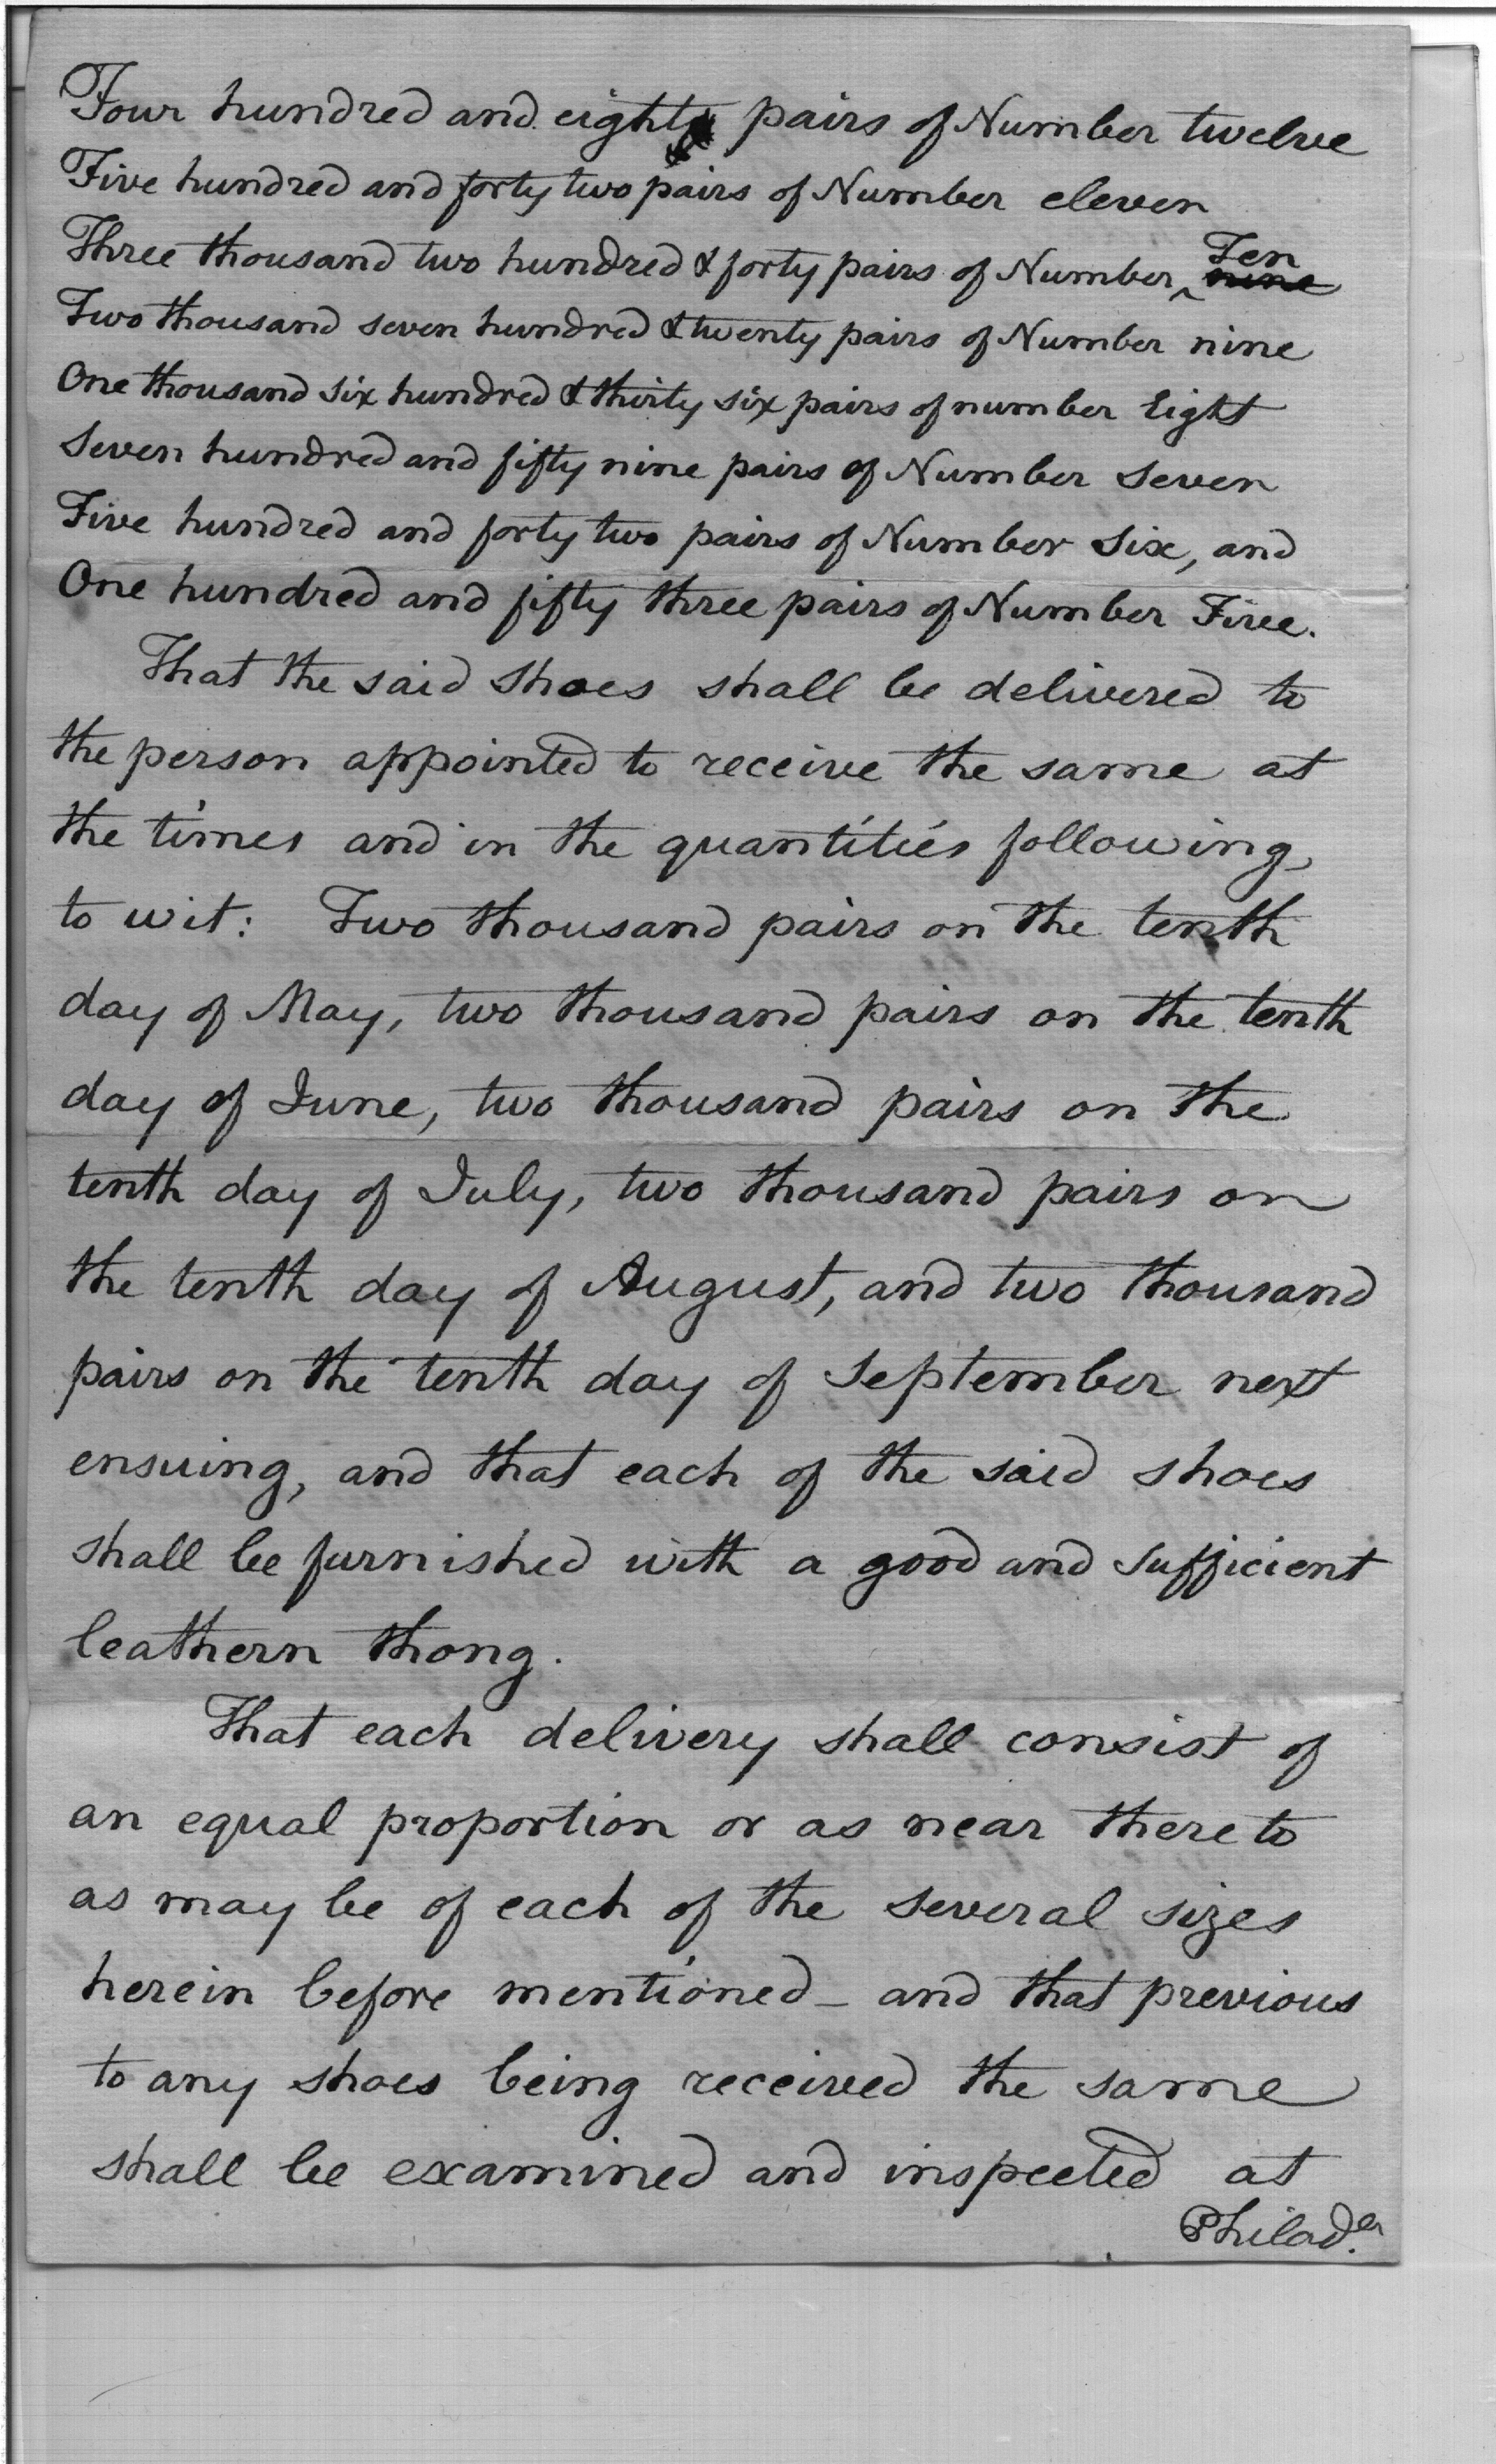 Four hundred and eighty pairs of Number twelve
Five hundred and forty two pairs of Number eleven
Three thousand two hundred & forty pairs of Number ^ Ten nine
Two thousand seven hundred & twenty pairs of Number nine
One thousand six hundred & thirty six pairs of number Eight
Seven hundred and fifty nine pairs of Number Seven
Five hundred and forty two pairs of Number Six, and
One hundred and fifty three pairs of Number Five.
That the said Shoes shall be delivered to
the person appointed to receive the same at
the times and in the quantities following,
to wit: Two thousand pairs on the tenth
day of May, two thousand pairs on the tenth
day of June, two thousand pairs on the
tenth day of July, two thousand pairs on
the tenth day of August, and two thousand
pairs on the tenth day of September next
ensuing, and that each of the said shoes
shall be furnished with a good and sufficient
leathern thong.
That each delivery shall consist of
an equal proportion or as near thereto
as may be of each of the several sizes
herein before mentioned _ and that previous
to any shoes being received the same
shall be examined and inspected at
Philad.a